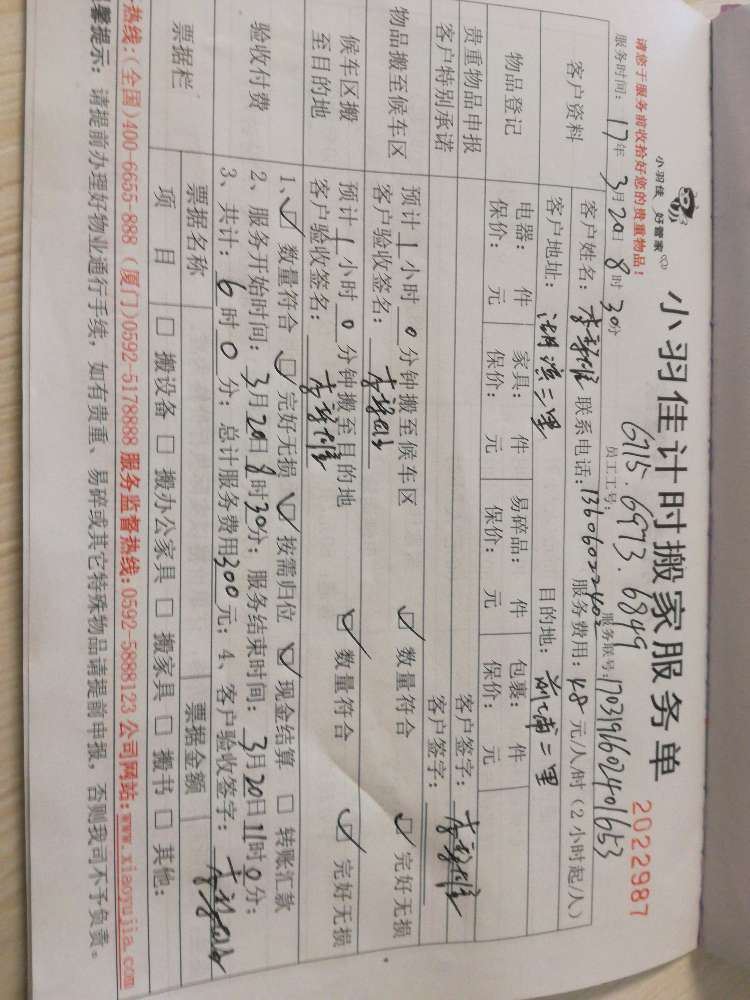 请您于服务前收拾好您的贵重物品!
小羽佳 好管家
小羽佳计时搬家服务单
2022987
员工工号: 6115.6973.6849
服务时间: 17年3月20日8时30分
服务联号: 1703191602401653
客户资料
客户姓名: 联系电话: 13606022402 服务费用: 48 元/人/时(2小时起/人)
客户地址: 湖滨二里 目的地: 前埔二里
物品登记
电器: 件 家具: 件 易碎品: 件 包裹: 件
保价: 元 保价: 元 保价: 元 保价: 元
贵重物品申报 客户签字:
客户特别承诺 客户签字:
物品搬至候车区
预计1小时0分钟搬至候车区 ☑ 数量符合 ☑ 完好无损
客户验收签名:
候车区搬至目的地
预计1小时0分钟搬至目的地 ☑ 数量符合 ☑ 完好无损
客户验收签名:
验收付费
1、☑ 数量符合 ☑ 完好无损 ☑ 按需归位 ☑ 现金结算 □ 转账汇款
2、服务开始时间: 3月20日8时30分; 服务结束时间: 3月20日11时0分;
3、共计: 6时0分; 总计服务费用300元; 4、客户验收签字:
票据栏
票据名称 票据金额
项目 □ 搬设备 □ 搬办公家具 □ 搬家具 □ 搬书 □ 其他:
热线:(全国)400-6655-888 (厦门)0592-5178888 服务监督热线:0592-5888123 公司网站:www.xiaoyujia.com
馨提示: 请提前办理好物业通行手续, 如有贵重、易碎或其它特殊物品请提前申报, 否则我司不予负责。